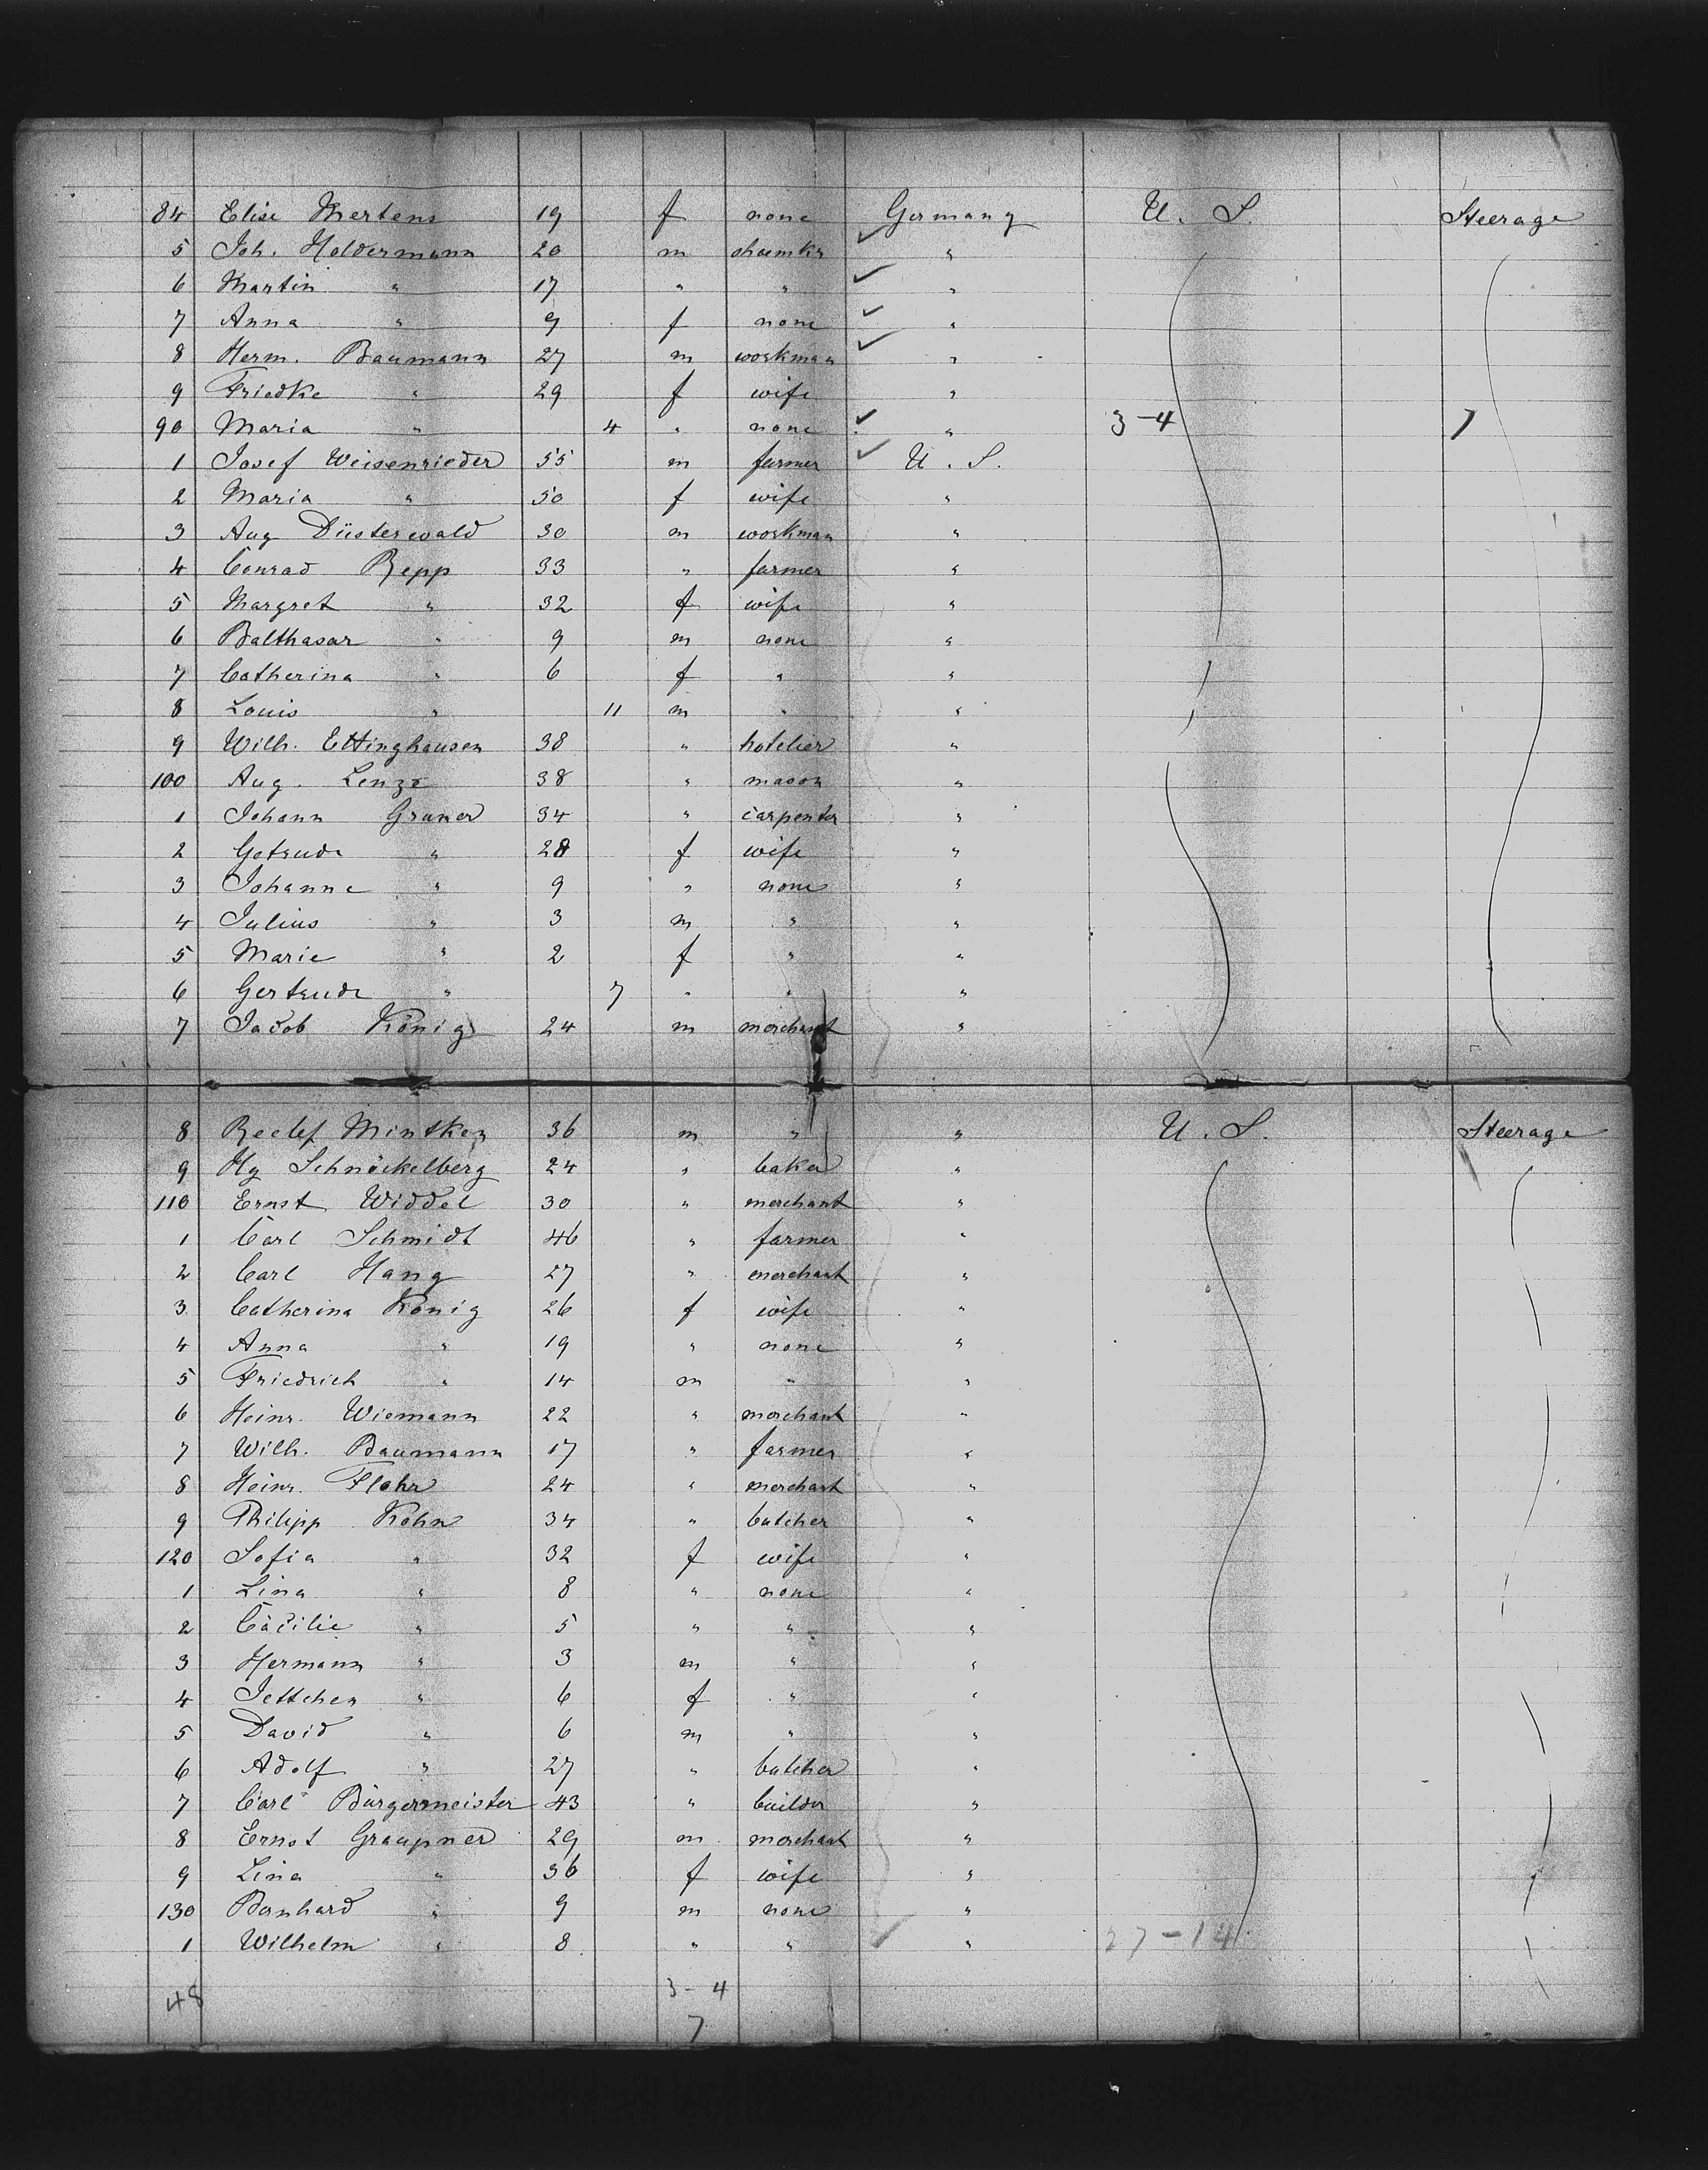 84 Elise Mertens 19 f none Germany U. S. Steerage
5 Joh. Holdermann 20 m shoemkr "
6 Martin " 17 " " "
7 Anna " 9 f none "
8 Herm. Baumann 27 m workman "
9 Friedke " 29 f wife "
90 Maria " 4 " none " 3-4 7
1 Josef Weisenrieder 55 m farmer U. S.
2 Maria " 50 f wife "
3 Aug Düsterwald 30 m workman "
4 Conrad Repp 33 " farmer "
5 Margret " 32 f wife "
6 Balthasar " 9 m none "
7 Catherina " 6 f " "
8 Louis " 11 m " "
9 Wilh. Ettinghausen 38 " hotelier "
100 Aug. Lenze 38 " mason "
1 Johann Gruner 34 " carpenter "
2 Getrude " 28 f wife "
3 Johanne " 9 " none "
4 Julius " 3 m " "
5 Marie " 2 f " "
6 Gertrude " 7 " " "
7 Jacob König 24 m merchant "
8 Reelef Mintken 36 m " " U. S. Steerage
9 Hy Schnöckelberg 24 " baker "
110 Ernst Widdel 30 " merchant "
1 Carl Schmidt 46 " farmer "
2 Carl Hang 27 " merchant "
3 Catherina König 26 f wife "
4 Anna " 19 " none "
5 Friedrich " 14 m " "
6 Heinr. Wiemann 22 " merchant "
7 Wilh. Baumann 17 " farmer "
8 Heinr. Flohr 24 " merchant "
9 Philipp Kohn 34 " butcher "
120 Sofia " 32 f wife "
1 Lina " 8 " none "
2 Cäcilie " 5 " " "
3 Hermann " 3 m " "
4 Jettchen " 6 f " "
5 David " 6 m " "
6 Adolf " 27 " butcher "
7 Carl Bürgermeister 43 " builder "
8 Ernst Graupner 29 m merchant "
9 Lina " 36 f wife "
130 Bernhard " 9 m none "
1 Wilhelm " 8 " " " 27-14
48 3-4
7